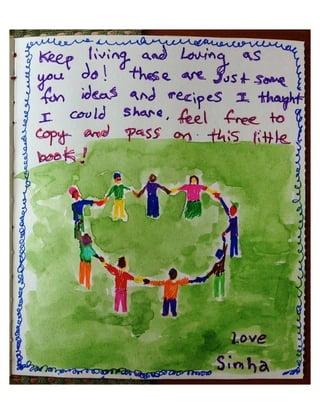 Keep living and Loving as
you do! these are Just some
fun ideas and recipes I thought
I could share, feel free to
copy and pass on this little
book!
Love
Simha